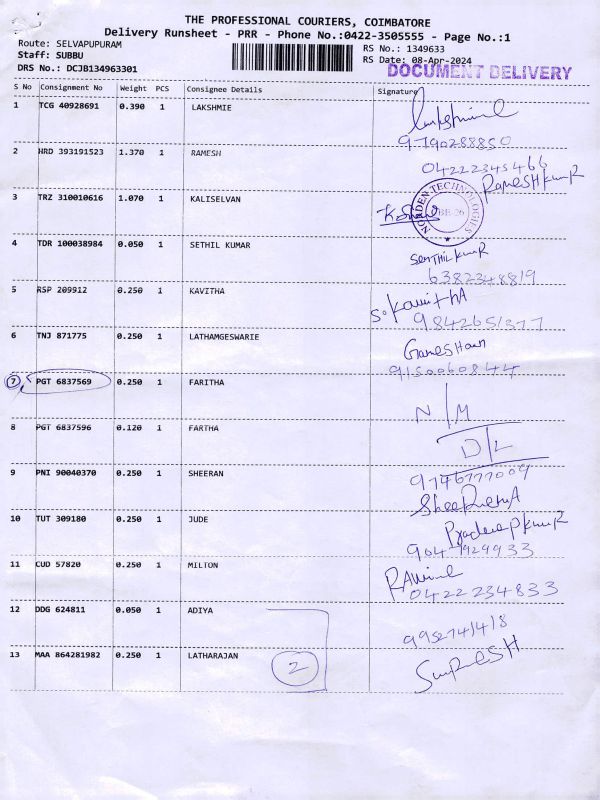 THE PROFESSIONAL COURIERS, COIMBATORE
Delivery Runsheet - PRR - Phone No.:0422-3505555 - Page No.:1
Route: SELVAPUPURAM
RS No.: 1349633
Staff: SUBBU
RS Date: 08-Apr-2024
DRS No.: DCJB134963301
DOCUMENT DELIVERY
S No Consignment No Weight PCS Consignee Details Signature
1 TCG 40928691 0.390 1 LAKSHMIE
9790288850
2 HRD 393191523 1.370 1 RAMESH
04222345466
RAMESH KUMAR
3 TRZ 310010616 1.070 1 KALISELVAN
TECHNOLOGIES
4 TDR 100038984 0.050 1 SETHIL KUMAR
SENTHIL KUMAR
6382348819
5 RSP 209912 0.250 1 KAVITHA
S. KAVITHA
9842651377
6 TNJ 871775 0.250 1 LATHAMGESWARIE
9150060844
7 PGT 6837569 0.250 1 FARITHA
N/M
8 PGT 6837596 0.120 1 FARTHA
D/L
9 PNI 90040370 0.250 1 SHEERAN
9746777009
10 TUT 309180 0.250 1 JUDE
Pradeep Kumar
11 CUD 57820 0.250 1 MILTON
04222234833
12 DDG 624811 0.050 1 ADIYA
9952741418
13 MAA 864281982 0.250 1 LATHARAJAN
2
SURESH